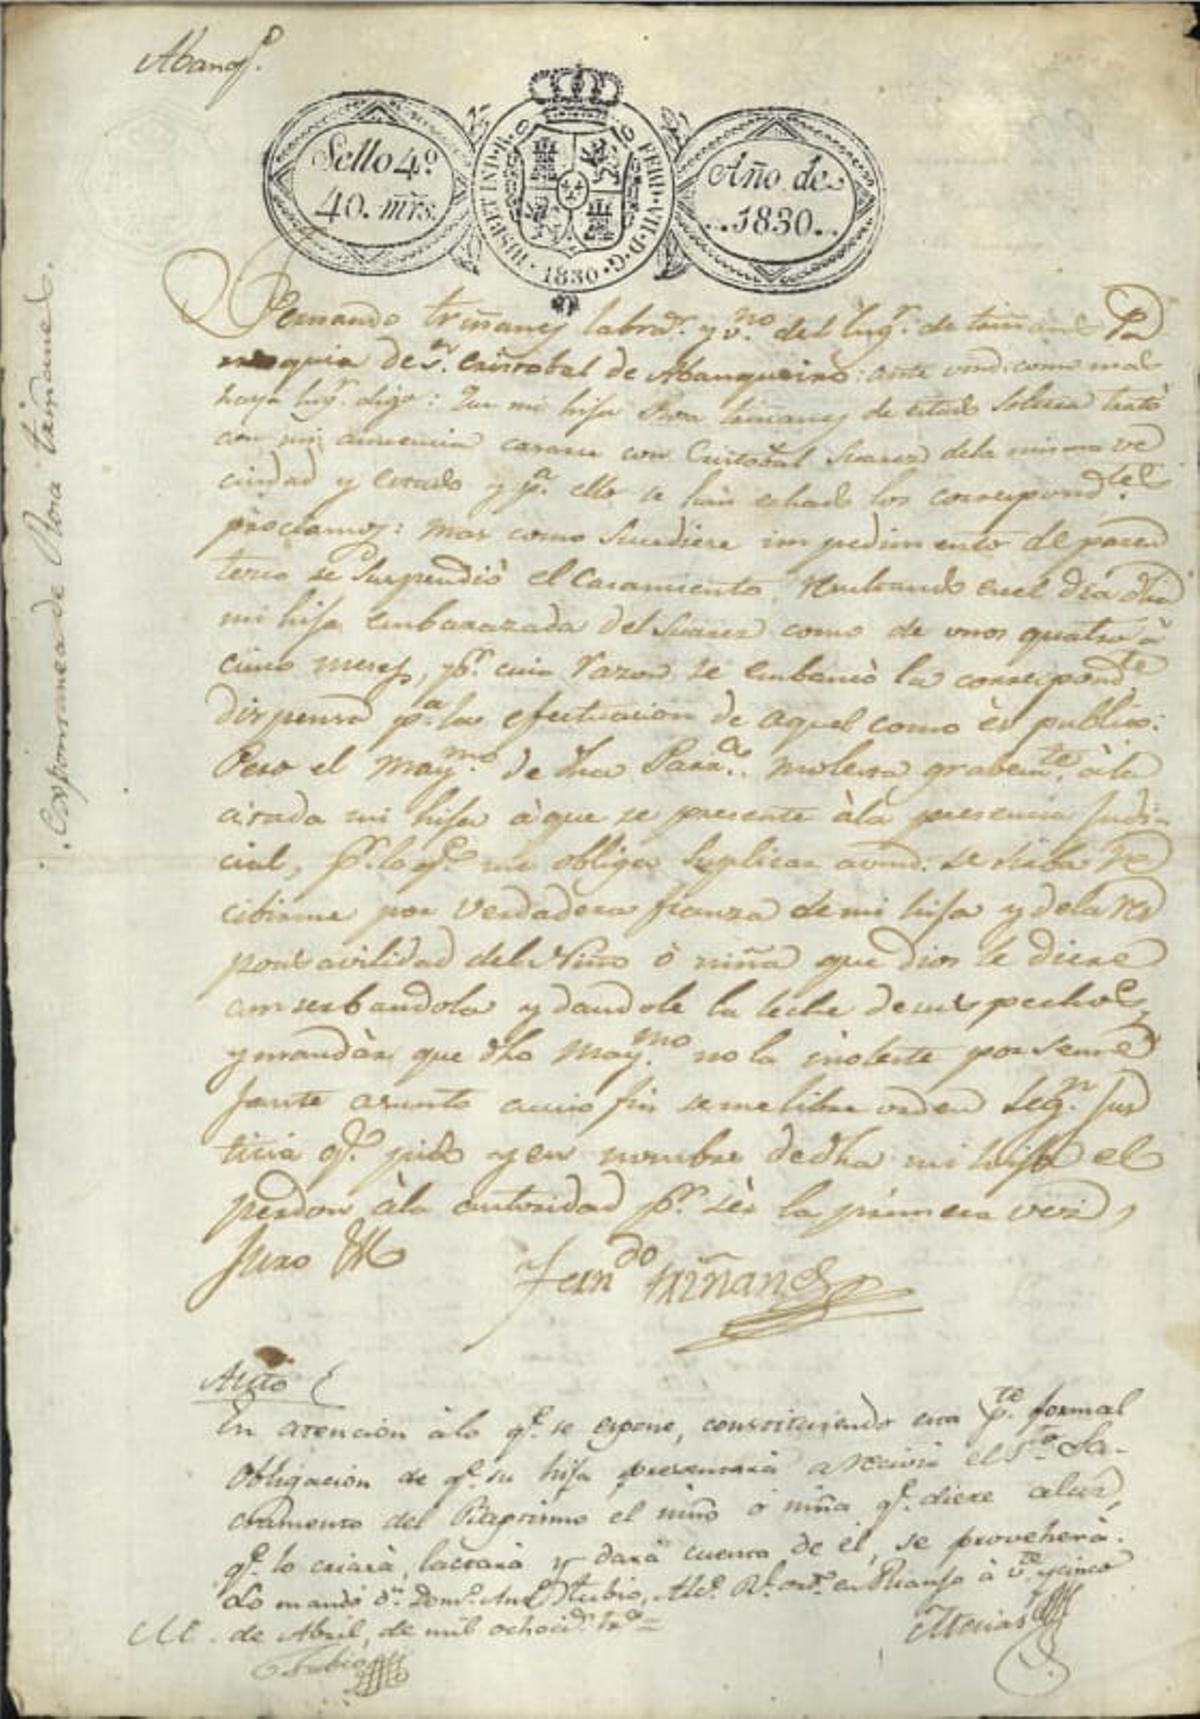 Abanqº.
Sello 4º.
40. mrs.
HISP. ET IND. R. FERD. VII. D. G.
1830
Año de
1830.
Espontanea de Rosa triñanes.
Fernando triñanes labraʳ. y vⁿº del lugʳ. de
rroquia de Sⁿ. Cristobal de Abanqueiro: ante vmd. como mas
haya lugʳ. digo: Que mi hija Rosa triñanes de estado Soltera trató
con mi anuencia casarse con Cristobal Suarez dela misma ve
cindad y estado y pª. ello se han echado los correspondᵗᵉˢ
proclamas: mas como Sucediese impedimento de paren
tesco se Suspendió el Casamiento, resultando enel dia dha
mi hija embarazada del Suarez como de unos quatro à
cinco meses, y pʳ. cuia razon se embarcó la correspondᵗᵉ
dispensa pª. la efectuacion de aquel como és publico:
Pero el Mayᵐº de dha Parrª. molesta grabemᵗᵉ. àla
citada mi hija à que se presente àla presencia Judi-
cial, pʳ. lo qᵉ. me obliga Suplicar a vmd: se sirba re
cibirme por verdadera fianza de mi hija y dela res
ponsavilidad del Niño ò niña que dios le diere
conserbandola y dandole la leche de sus pechos,
y mandàr que dho Mayᵐº no la inoleste por seme
jante asunto acuio fin se me libre orden Segⁿ. Jus
ticia qᵉ. pido y en nombre dedha mi hija el
perdon àla autoridad pʳ. sèr la primera vez,
Juro &ª
Fernᵈº triñanes
Auto
En atencion àlo qᵉ. se espone, constituiendo esta pᵗᵉ. formal
obligacion de qᵉ. su hija presentará a recivir el Sᵗº. Sa-
cramento del Baptismo el niño ó niña qᵉ. diere aluz,
qᵉ. lo criará, lactará y dará cuenta de él, se proveherà.
Lo mandó dⁿ. Domº. Rubio, Alcᵉ. Rˡ. ordº. en Rianjo à vᵗᵉ y cinco
de Abril, de mil ochocᵗˢ. trᵗª =
Rubio